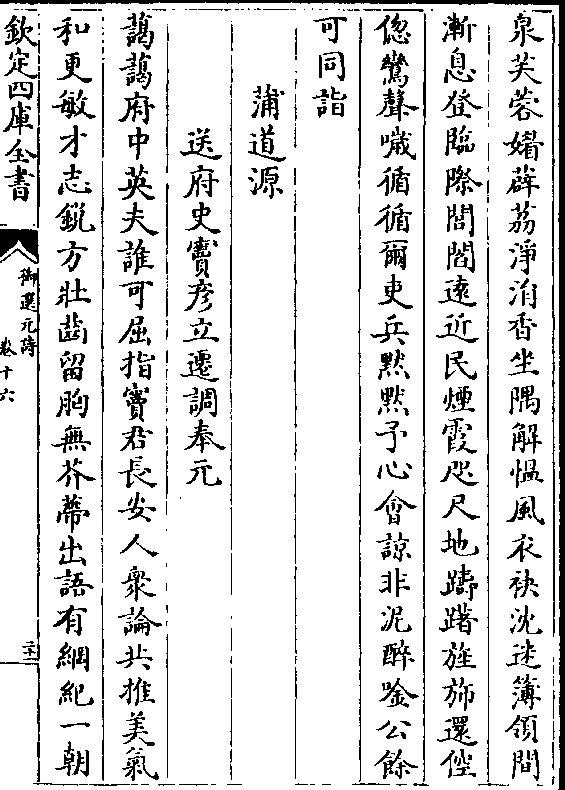 泉芙蓉婧薜荔淨洎香坐隅解慍風衣袂沈迷簿領間
漸息登臨際閭閻遠近民煙霞咫尺地躊躇旌斾還倥
偬鸞聲噦循循爾吏兵黙黙予心會諒非泥醉唫公餘
可同詣
蒲道源
送府史竇彦立遷調奉元
藹藹府中英夫誰可屈指竇君長安人衆論共推美氣
和更敏才志鋭方壯齒留胸無芥蔕出語有綱紀一朝
欽定四庫全書
御選元詩
卷十六